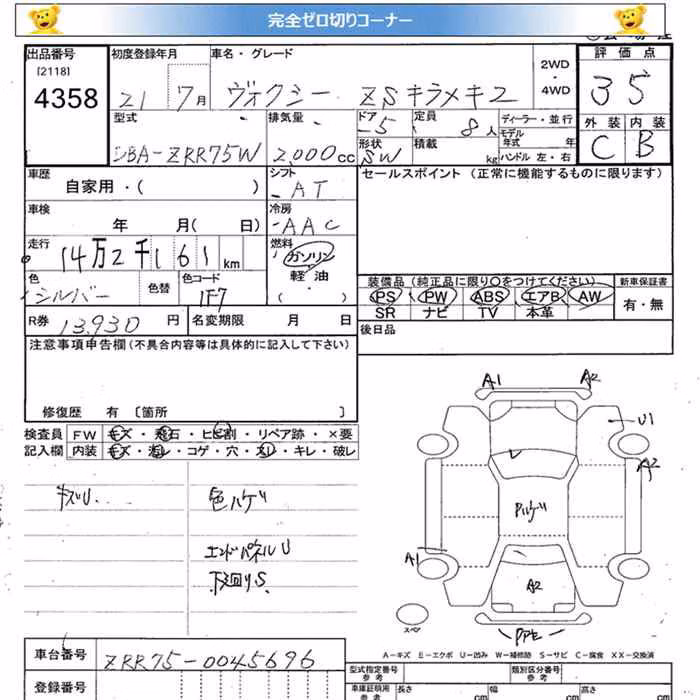 完全ゼロ切りコーナー
出品番号
[2118]
4358
初度登録年月
21 7月
車名・グレード
ヴォクシー ZSキラメキ2
2WD
・
4WD
評価点
3 5
外装 内装
C B
型式
DBA-ZRR75W
排気量
2,000cc
ドア
5
形状
SW
定員
8人
積載
kg
ディーラー・並行
モデル
年式 年
ハンドル 左・右
車歴
自家用・( )
シフト
AT
セールスポイント (正常に機能するものに限ります)
車検
年 月( 日)
冷房
AAC
走行
14万2千161km
燃料
ガソリン
軽・油
( )
色
シルバー
色替
色コード
1F7
装備品(純正品に限り○をつけてください)
PS PW ABS エアB AW
SR ナビ TV 本革
新車保証書
有・無
R券
13,930円
名変期限 月 日
後日品
注意事項申告欄(不具合内容等は具体的に記入して下さい)
修復歴 有 〔箇所 〕
検査員
記入欄
FW キズ・飛石・ヒビ割・リペア跡・×要
内装 キズ・汚レ・コゲ・穴・スレ・キレ・破レ
キズU
色ハゲ
エンドパネルU
下廻りS
A1 A2
U1
A2
Pハゲ
A1
A2
スペア
A-キズ E-エクボ U-凹み W-補修跡 S-サビ C-腐食 XX-交換済
車台番号
ZRR75-0045696
登録番号
型式指定番号
参考
類別区分番号
参考
車庫証明用
参考
長さ cm
幅 cm
高さ cm